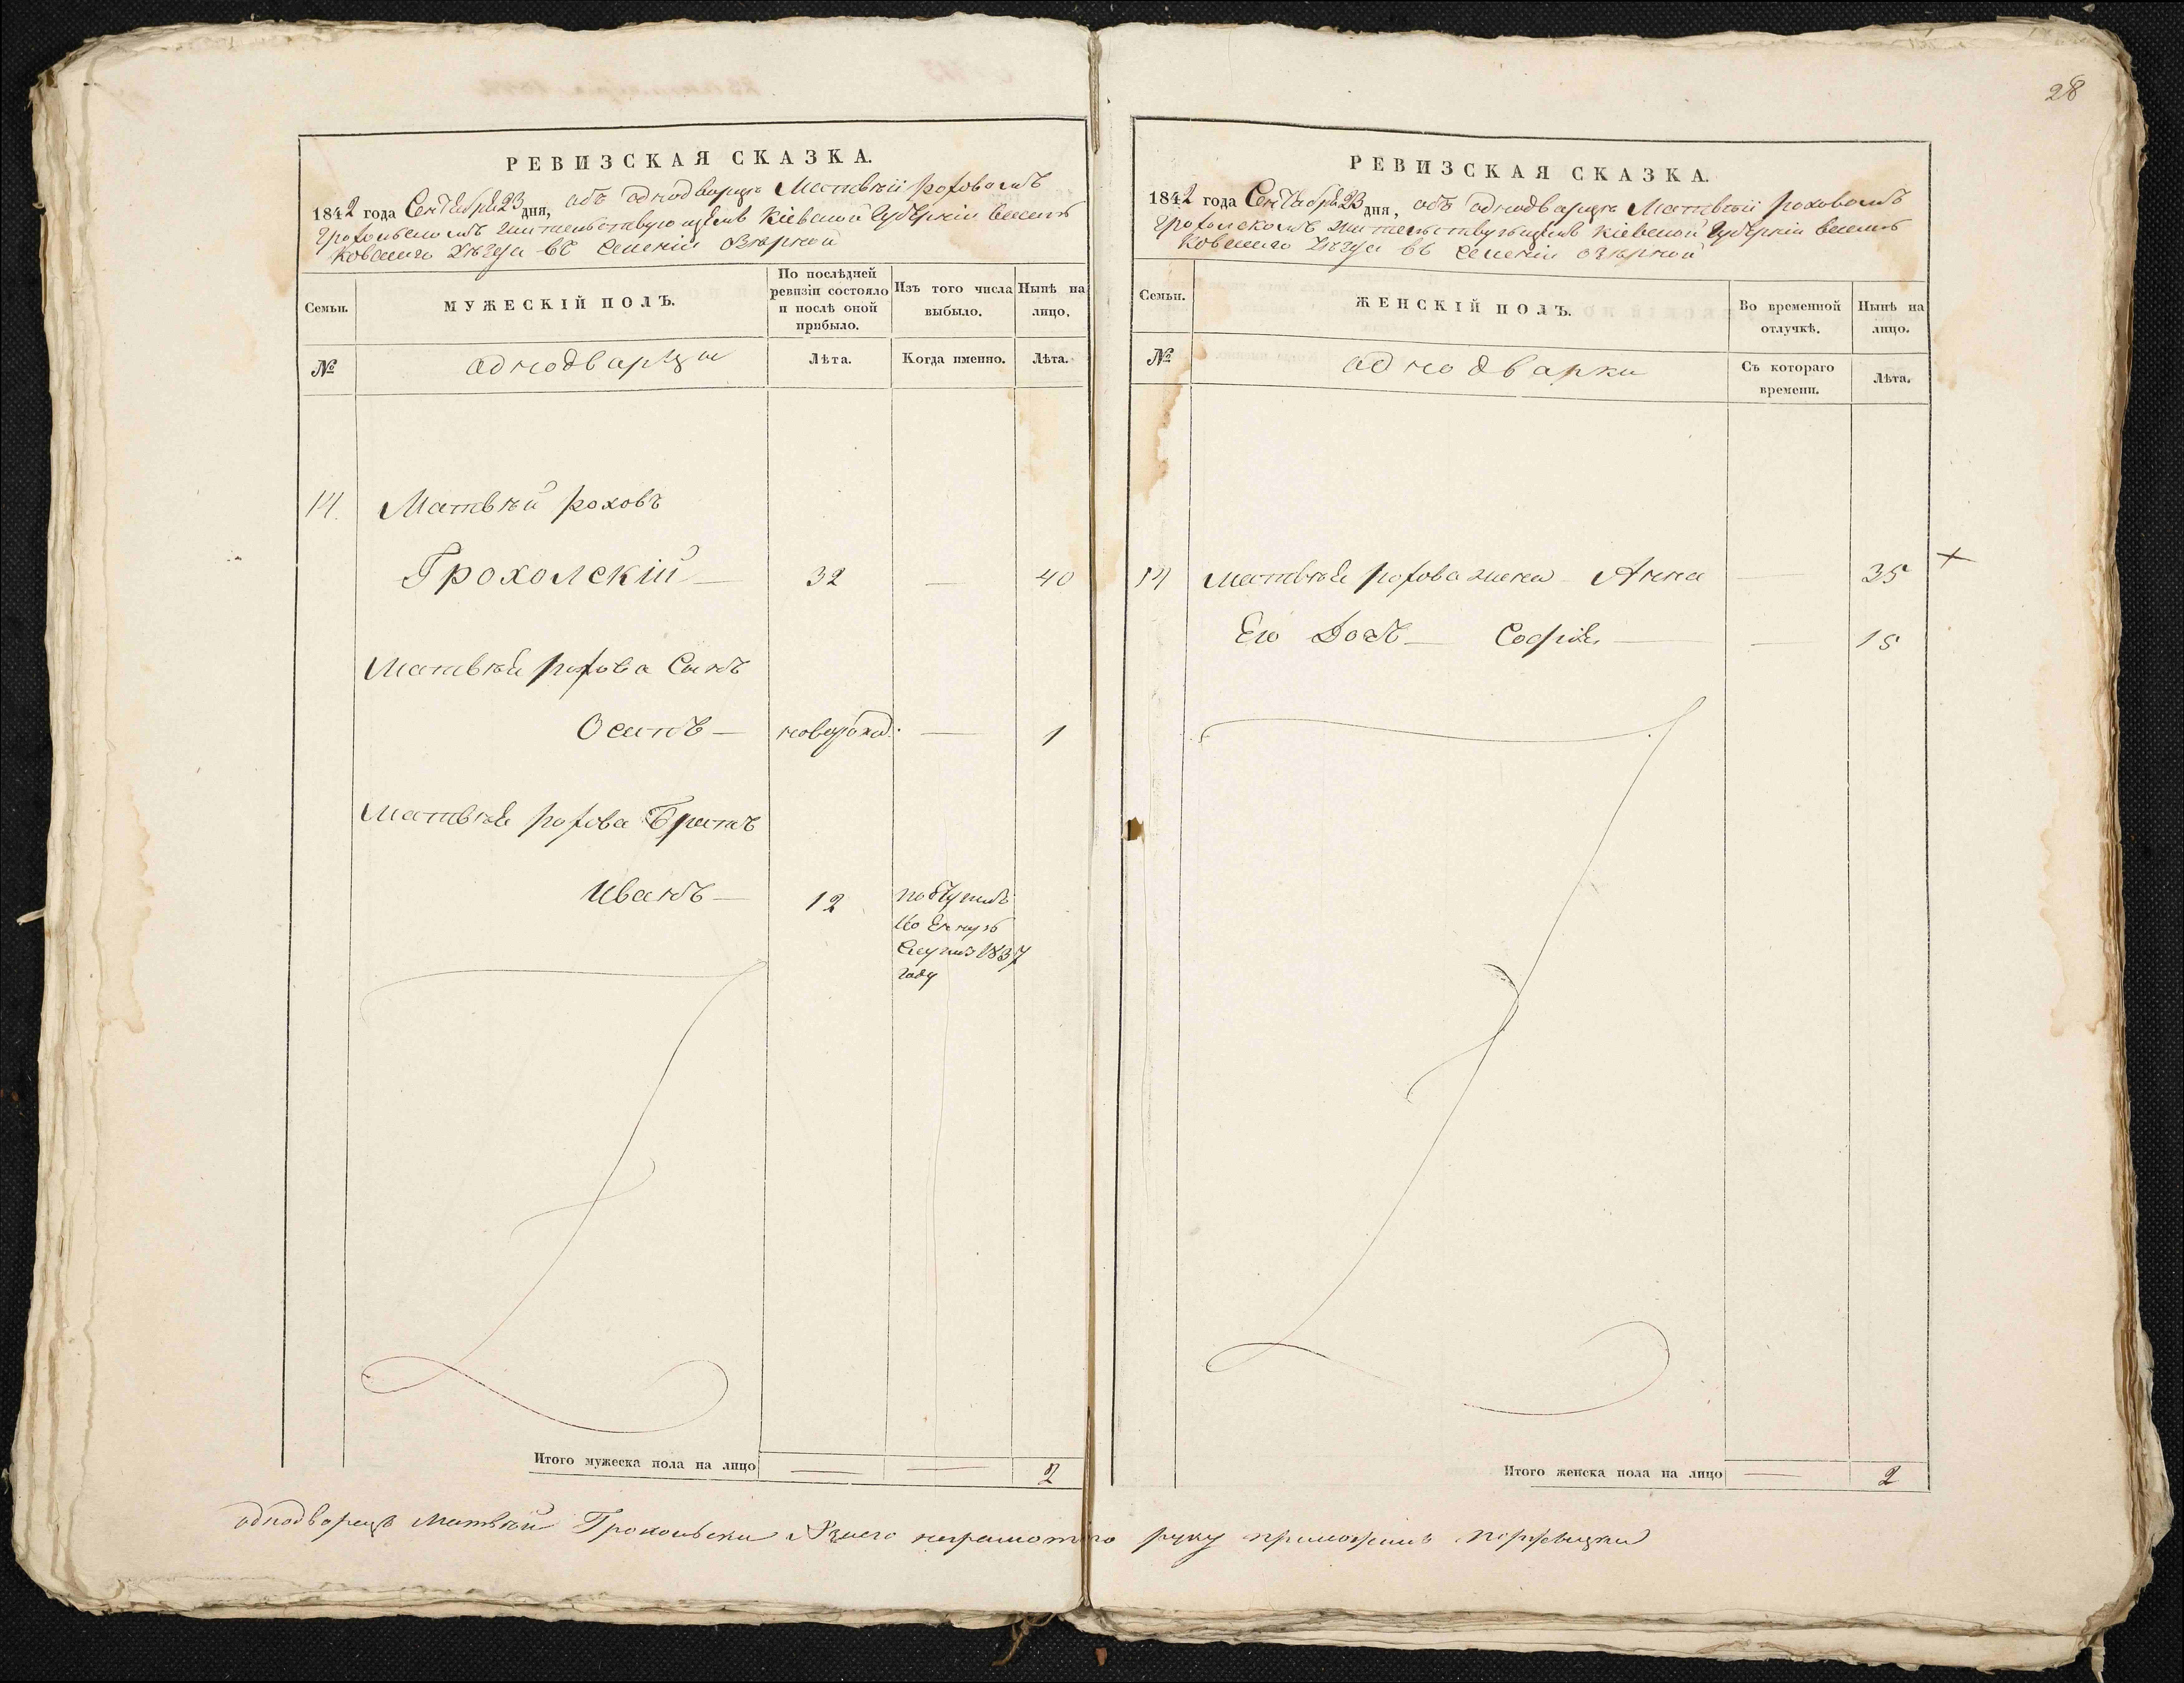 28
РЕВИЗСКАЯ СКАЗКА.
1842 года Сентября 23 дня, объ однодворцѣ Матвѣіи Роховомъ
Грохольскомъ жительствующемъ Кіевской Губерніи Василь
ковского уѣзда въ селеніи Озѣрной
Семьи.
МУЖЕСКІЙ ПОЛЪ.
По послѣдней ревизіи состояло и послѣ оной прибыло.
Изъ того числа выбыло.
Нынѣ на лицо.
№
однодворцы
Лѣта.
Когда именно.
Лѣта.
14. Матвѣй Роховъ
Грохолскій — 32 — 40
Матвѣя Рохова Сынъ
Осипъ — новорожд: — 1
Матвѣя Рохова Братъ
Иванъ — 12 поступилъ
въ
1837
году
Итого мужеска пола на лицо — — 2
РЕВИЗСКАЯ СКАЗКА.
1842 года Сентября 23 дня, объ однодворцѣ Матвѣіи Роховомъ
Грохолскомъ жительствующемъ Кіевской Губерніи Василь
ковского уѣзда въ селеніи Озѣрной
Семьи.
ЖЕНСКІЙ ПОЛЪ.
Во временной отлучкѣ.
Нынѣ на лицо.
№
однодворки
Съ котораго времени.
Лѣта.
14 Матвѣя Рохова жена Анна — 35 +
Его Дочь — Софія — — 15
Итого женска пола на лицо — 2
однодворецъ Матвѣй Грохольски неграмотного руку приложилъ